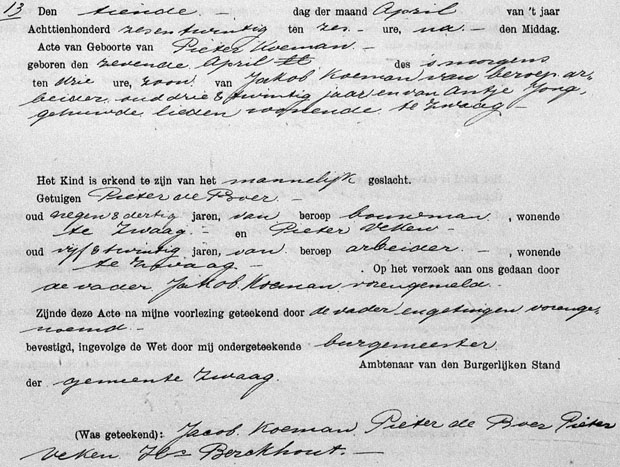 13 Den tiende. - dag der maand April van 't jaar
Achttienhonderd zesentwintig ten zes - ure, na - den Middag.
Acte van Geboorte van Pieter Koeman -
geboren den zevende April des 's morgens
ten drie ure, zoon. van Jakob Koeman van beroep ar-
beider, oud drie & twintig jaar en van Antje Jong,
gehuwde lieden wonende te Zwaag -
Het Kind is erkend te zijn van het mannelijk geslacht.
Getuigen Pieter de Boer. -
oud negen & dertig jaren, van beroep bouwman , wonende
te Zwaag. - en Pieter Veken -
oud vijf & twintig jaren, van beroep arbeider. - , wonende
te Zwaag - . Op het verzoek aan ons gedaan door
de vader Jakob Koeman vorengemeld.
Zijnde deze Acte na mijne voorlezing geteekend door de vader en getuigen vorenge-
noemd. -
bevestigd, ingevolge de Wet door mij ondergeteekende burgemeester
Ambtenaar van den Burgerlijken Stand
der gemeente Zwaag.
(Was geteekend): Jacob Koeman Pieter de Boer Pieter
Veken Hs Berckhout. -